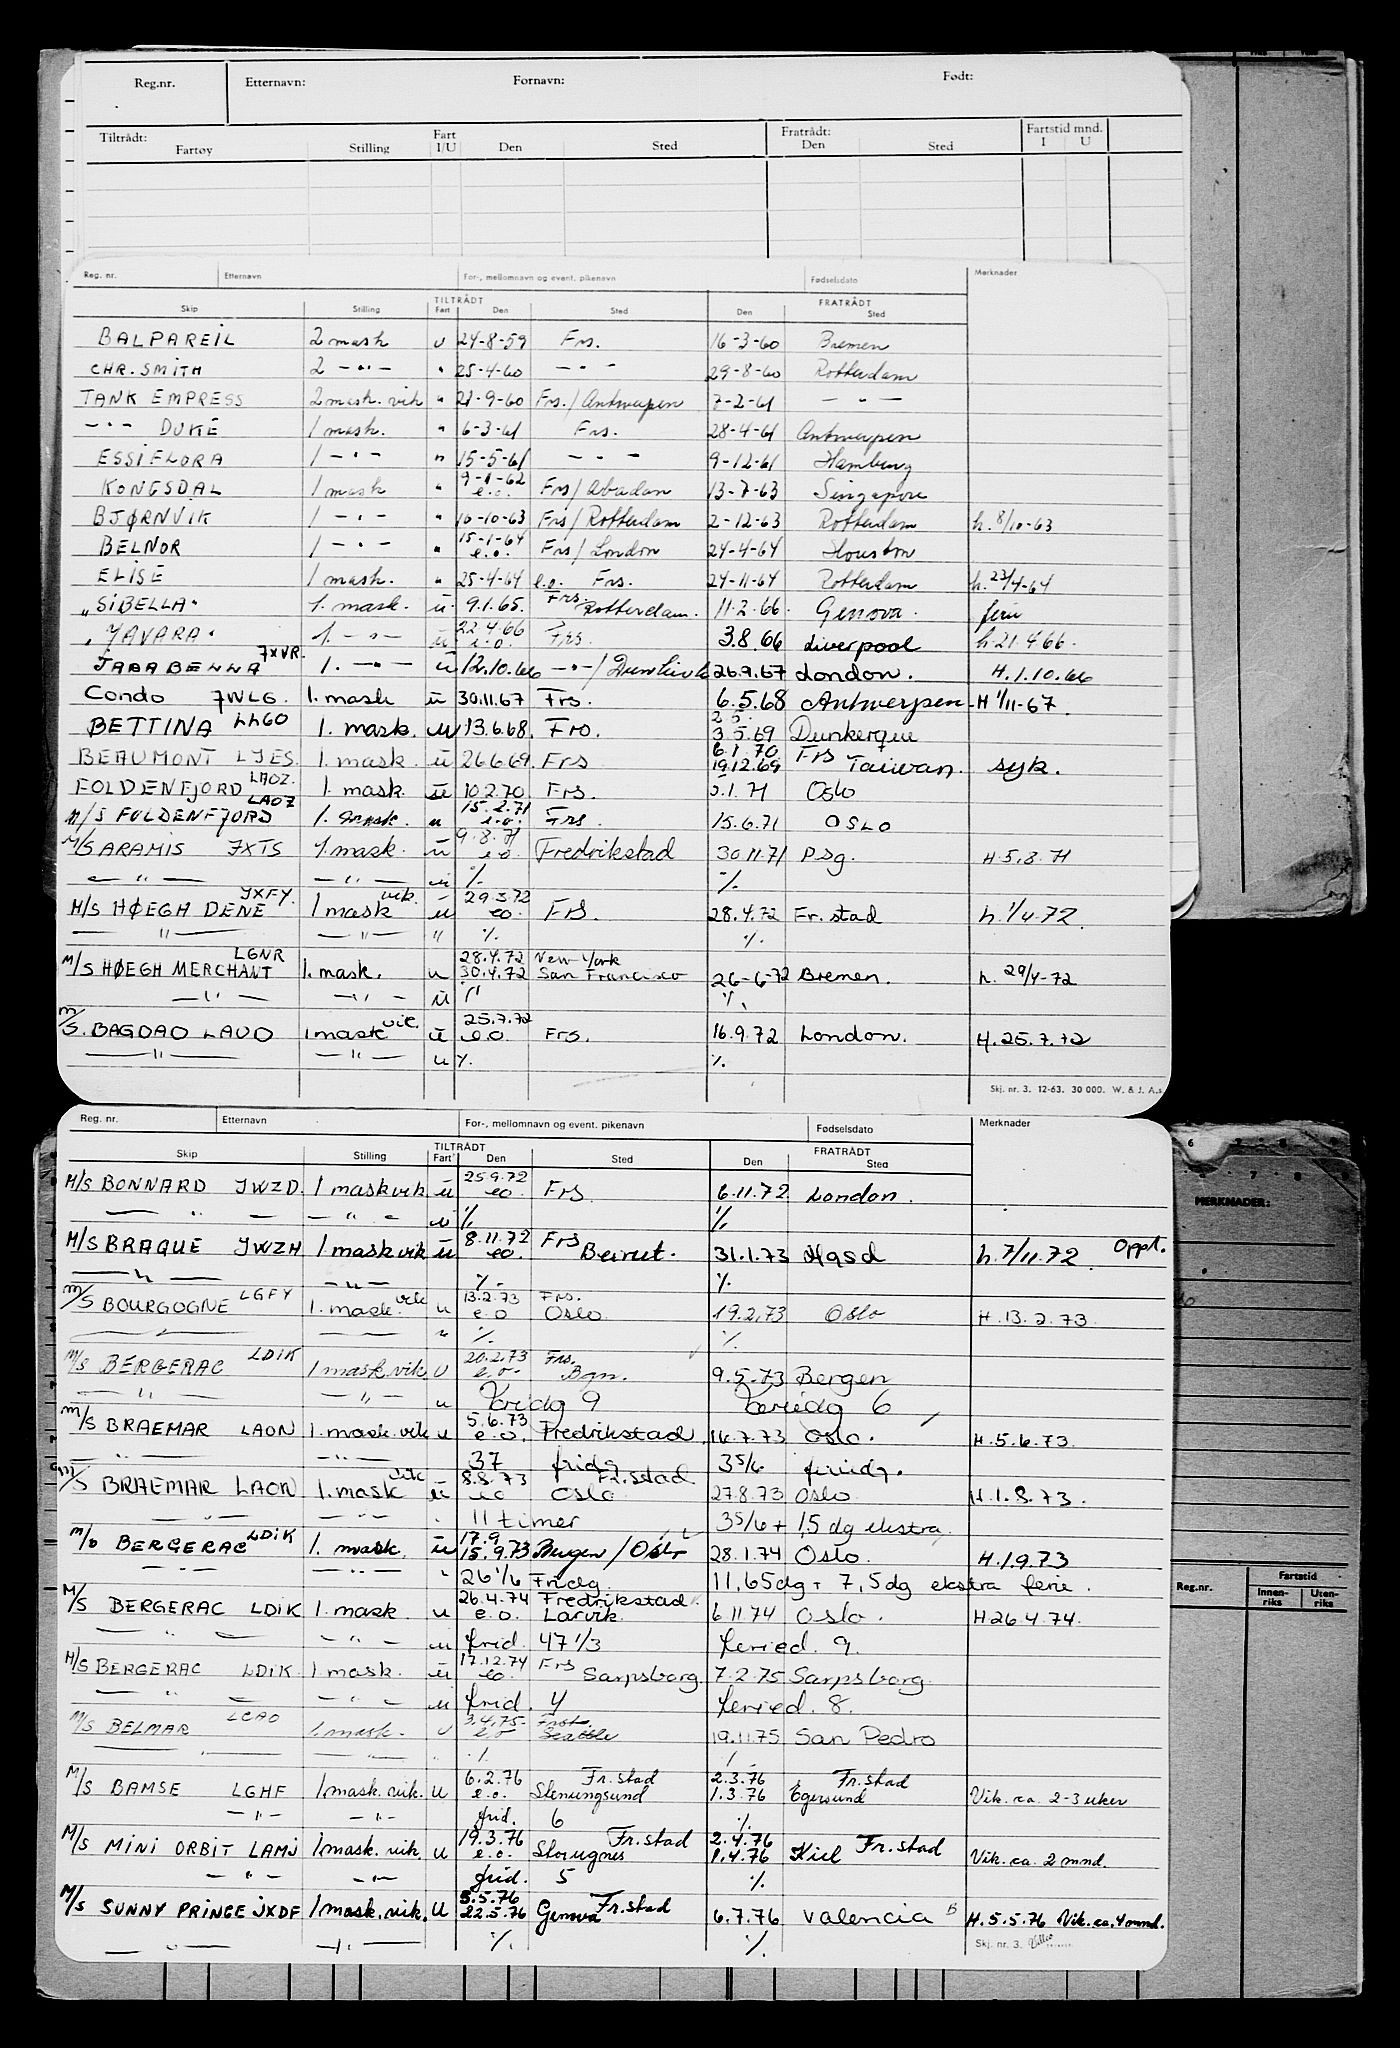 Reg.nr. Etternavn: Fornavn: Født:
Tiltrådt: Fart Fratrådt: Fartstid mnd.
Fartøy Stilling I/U Den Sted Den Sted I U
Reg. nr. Etternavn For-, mellomnavn og event. pikenavn Fødselsdato Merknader
TILTRÅDT FRATRÅDT
Skip Stilling Fart Den Sted Den Sted
BALPAREIL 2 mask u 24-8-59 Frs. 16-3-60 Bremen
CHR. SMITH 2 -"- " 25-4-60 -"- 29-8-60 Rotterdam
TANK EMPRESS 2 mask. vik " 21-9-60 Frs./Antwerpen 7-2-61 -"-
-"- DUKE 1 mask. " 6-3-61 Frs. 28-4-61 Antwerpen
ESSI FLORA 1 -"- " 15-5-61 -"- 9-12-61 Hamburg
KONGSDAL 1 mask " 9-1-62 e.o. Frs/Abadan 13-7-63 Singapore
BJØRNVIK 1 -"- " 10-10-63 Frs/Rotterdam 2-12-63 Rotterdam h. 8/10-63
BELNOR 1 -"- " 15-1-64 e.o. Frs/London 24-4-64 Houston
ELISE 1 mask. " 25-4-64 e.o. Frs. 24-11-64 Rotterdam h. 23/4-64
"SIBELLA" 1. mask. u 9.1.65. Frs. Rotterdam. 11.2.66. Genova. ferie
"JAVARA" 1. -"- u 22.4.66 e.o. Frs. 3.8.66 Liverpool h 21.4.66.
JARABELLA JXVR. 1. -"- u 12.10.66 -"-/Dunkirk 26.9.67 London. H.1.10.66
Condo JWLG. 1. mask u 30.11.67 Frs. 6.5.68 Antwerpen H 1/11-67.
BETTINA LLGO 1. mask. u 13.6.68. Frs. 2 5. 3 5 69 Dunkerque
BEAUMONT LJES. 1. mask. u 26.6.69. Frs 6.1.70 19.12.69 Frs Taiwan. syk.
FOLDENFJORD LAOZ. 1. mask. u 10.2.70 Frs. 5.1.71 Oslo
M/S FOLDENFJORD LAOZ 1. mask. u 15.2.71 e.o. Frs 15.6.71 OSLO
M/S ARAMIS JXTS 1. mask. u 9.8.71 e.o. Fredrikstad 30.11.71 Psg. H.5.8.71
-"- -"- u % %
M/S HØEGH DENE JXFY. 1 mask vik. u 29.3.72 eo. Frs. 28.4.72 Fr.stad h.1/4.72.
-"- -"- " % %
M/S HØEGH MERCHANT LGNR 1. mask. u 28.4.72 New York 30.4.72 San Francisco 26-6-72 Bremen. h. 29/4-72
-"- -"- u %
M/S. BAGDAD LAUD 1 mask vik. u 25.7.72 e.o. Frs. 16.9.72 London. H.25.7.72
-"- -"- u % %
Skj. nr. 3. 12-63. 30 000. W. & J. A.s
Reg. nr. Etternavn For-, mellomnavn og event. pikenavn Fødselsdato Merknader
TILTRÅDT FRATRÅDT
Skip Stilling Fart Den Sted Den Sted
M/S BONNARD JWZD. 1 mask vik. u 25.9.72 eo Frs. 6.11.72 London.
-"- -"- u % %
M/S BRAQUE JWZH 1 mask vik u 8.11.72 eo. Frs Beirut. 31.1.73 Hgsd h.7/11.72. Oppt.
-"- -"- % %
M/S BOURGOGNE LGFY 1. mask. vik u 13.2.73 e.o Frs. Oslo. 19.2.73 Oslo H.13.2.73.
-"- -"- " % %
M/S BERGERAC LDIK 1 mask vik. u 20.2.73 e.o. Frs. Bgn. 9.5.73 Bergen
-"- -"- u Fridg 9 Feriedg 6
M/S BRAEMAR LAON 1. mask. vik u 5.6.73 e.o. Fredrikstad 16.7.73 Oslo. H.5.6.73.
-"- -"- 37 fridg 35/6 feriedg.
M/S BRAEMAR LAON 1. mask vik u 8.8.73 eo Fr.stad Oslo. 27.8.73 Oslo. H.1.8.73.
-"- -"- 11 timer 35/6 + 1,5 dg ekstra
M/S BERGERAC LDIK 1. mask. u 17.9 15.9.73 Bergen/Oslo 28.1.74 Oslo. H.1.9.73
-"- -"- " 26 1/6 Fridg. 11,65dg + 7,5dg ekstra ferie.
M/S BERGERAC LDIK 1. mask. u 26.4.74 e.o. Fredrikstad Larvik. 6.11.74 Oslo. H26.4.74.
-"- -"- u frid. 47 1/3 feried. 9.
M/S BERGERAC LDIK. 1 mask. u 17.12.74 eo. Frs Sarpsborg. 7.2.75 Sarpsborg.
-"- -"- u frid. 4 feried. 8.
M/S BELMAR LCAO 1. mask. u 3.4.75- e.o Frst. Seattle 19.11.75 San Pedro
-"- -"- " % %
M/S BAMSE LGHF 1. mask. vik. u 6.2.76 e.o. Fr.stad Stenungsund 2.3.76 1.3.76 Fr.stad Egersund Vik. ca. 2-3 uker
-"- -"- frid. 6 %
M/S MINI ORBIT LAMJ 1 mask. vik. u 19.3.76 e.o. Fr.stad 2.4.76 1.4.76 Kiel Fr.stad Vik. ca. 2 mnd.
-"- -"- frid. 5 %
M/S SUNNY PRINCE JXDF 1 mask. vik. u 5.5.76 22.5.76 Fr.stad Genova 6.7.76 Valencia H.5.5.76 Vik. ca. 4 mnd.
-"- -"- % %
Skj. nr. 3.
6 7 8 9
MERKNADER:
Fartstid
Reg.nr. Innen-riks Uten-riks